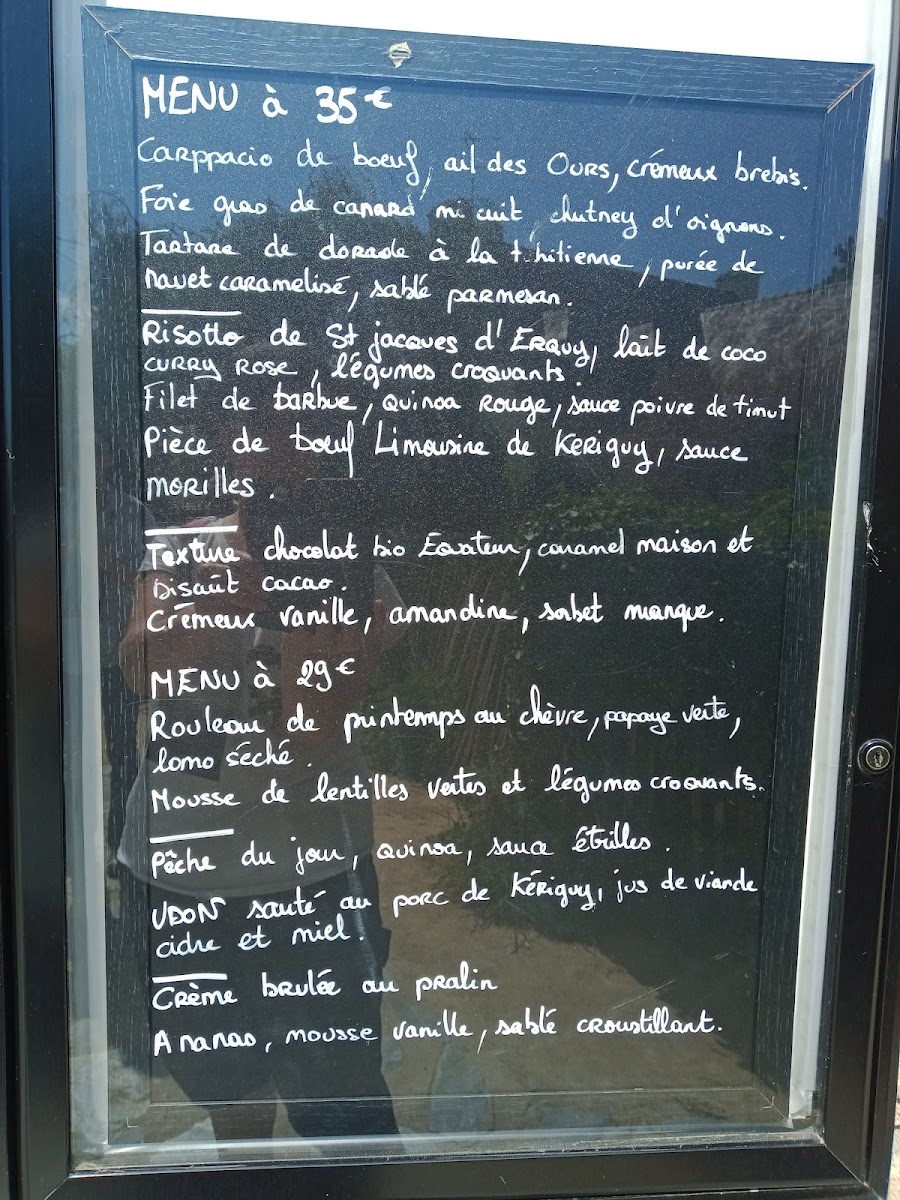 MENU à 35€
Carppacio de boeuf, ail des Ours, crémeux brebis.
Foie gras de canard mi cuit, chutney d'oignons.
Tartare de dorade à la t.hitienne, purée de
navet caramelisé, sablé parmesan.
Risotto de St jacques d'Erquy, lait de coco
curry rose, légumes croquants.
Filet de barbue, quinoa rouge, sauce poivre de timut
Pièce de boeuf Limousine de Keriguy, sauce
morilles.
Texture chocolat bio Equateur, caramel maison et
biscuit cacao.
Crémeux vanille, amandine, sorbet mangue.
MENU à 29€
Rouleau de printemps au chèvre, papaye verte,
lomo séché.
Mousse de lentilles vertes et légumes croquants.
Pêche du jour, quinoa, sauce étrilles.
UDON sauté au porc de Kériguy, jus de viande
cidre et miel.
Crème brulée au pralin
Ananas, mousse vanille, sablé croustillant.